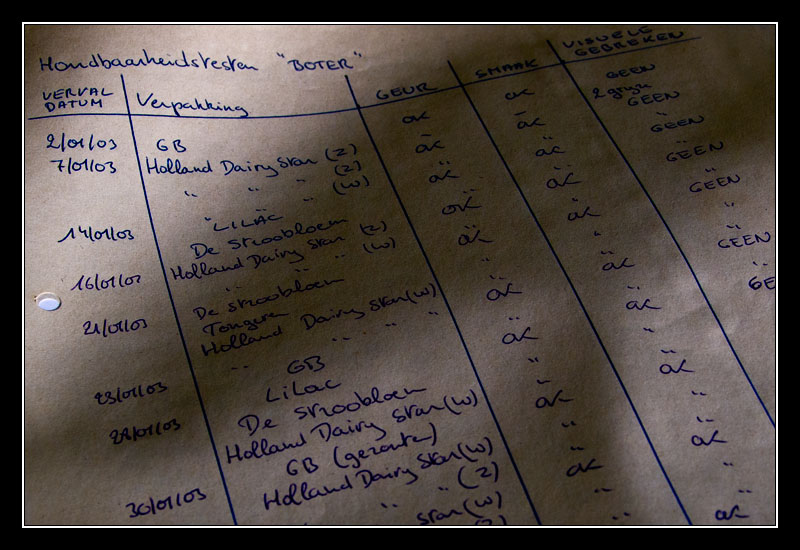 Houdbaarheidstesten "BOTER"
VERVAL DATUM Verpakking GEUR SMAAK VISUELE GEBREKEN
2/01/03 GB ok ok GEEN
7/01/03 Holland Dairy Star (Z) ok ok 2 GEEN
" " " (Z) ok ok GEEN
" " " (W)
14/01/03 "LILAC ok ok GEEN
De stroobloem ok ok GEEN
Holland Dairy Star (Z) "
16/01/03 " " " (W) " ok "
De stroobloem ok GEEN
21/01/03 Tongeren ok "
Holland Dairy Star (W) ok
" " " "
23/01/03 GB " ok "
LILAC ok
28/01/03 De stroobloem " "
Holland Dairy Star (W) ok
GB (gezouten) ok "
Holland Dairy Star (W) "
30/01/03 " " (Z) " ok
Star (W)